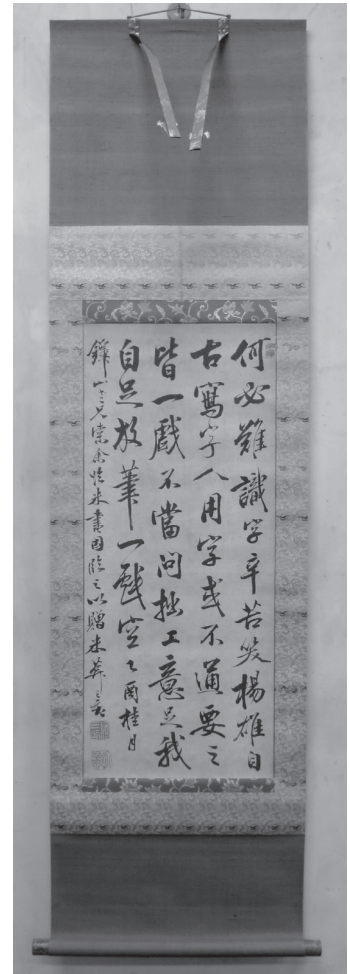 何必難識字辛苦笑楊雄自
古寫字人用字或不通要之
皆一戲不當問拙工意足我
自足放筆一戲空乙酉桂月
山三兄索余臨米書因臨之以贈米葊